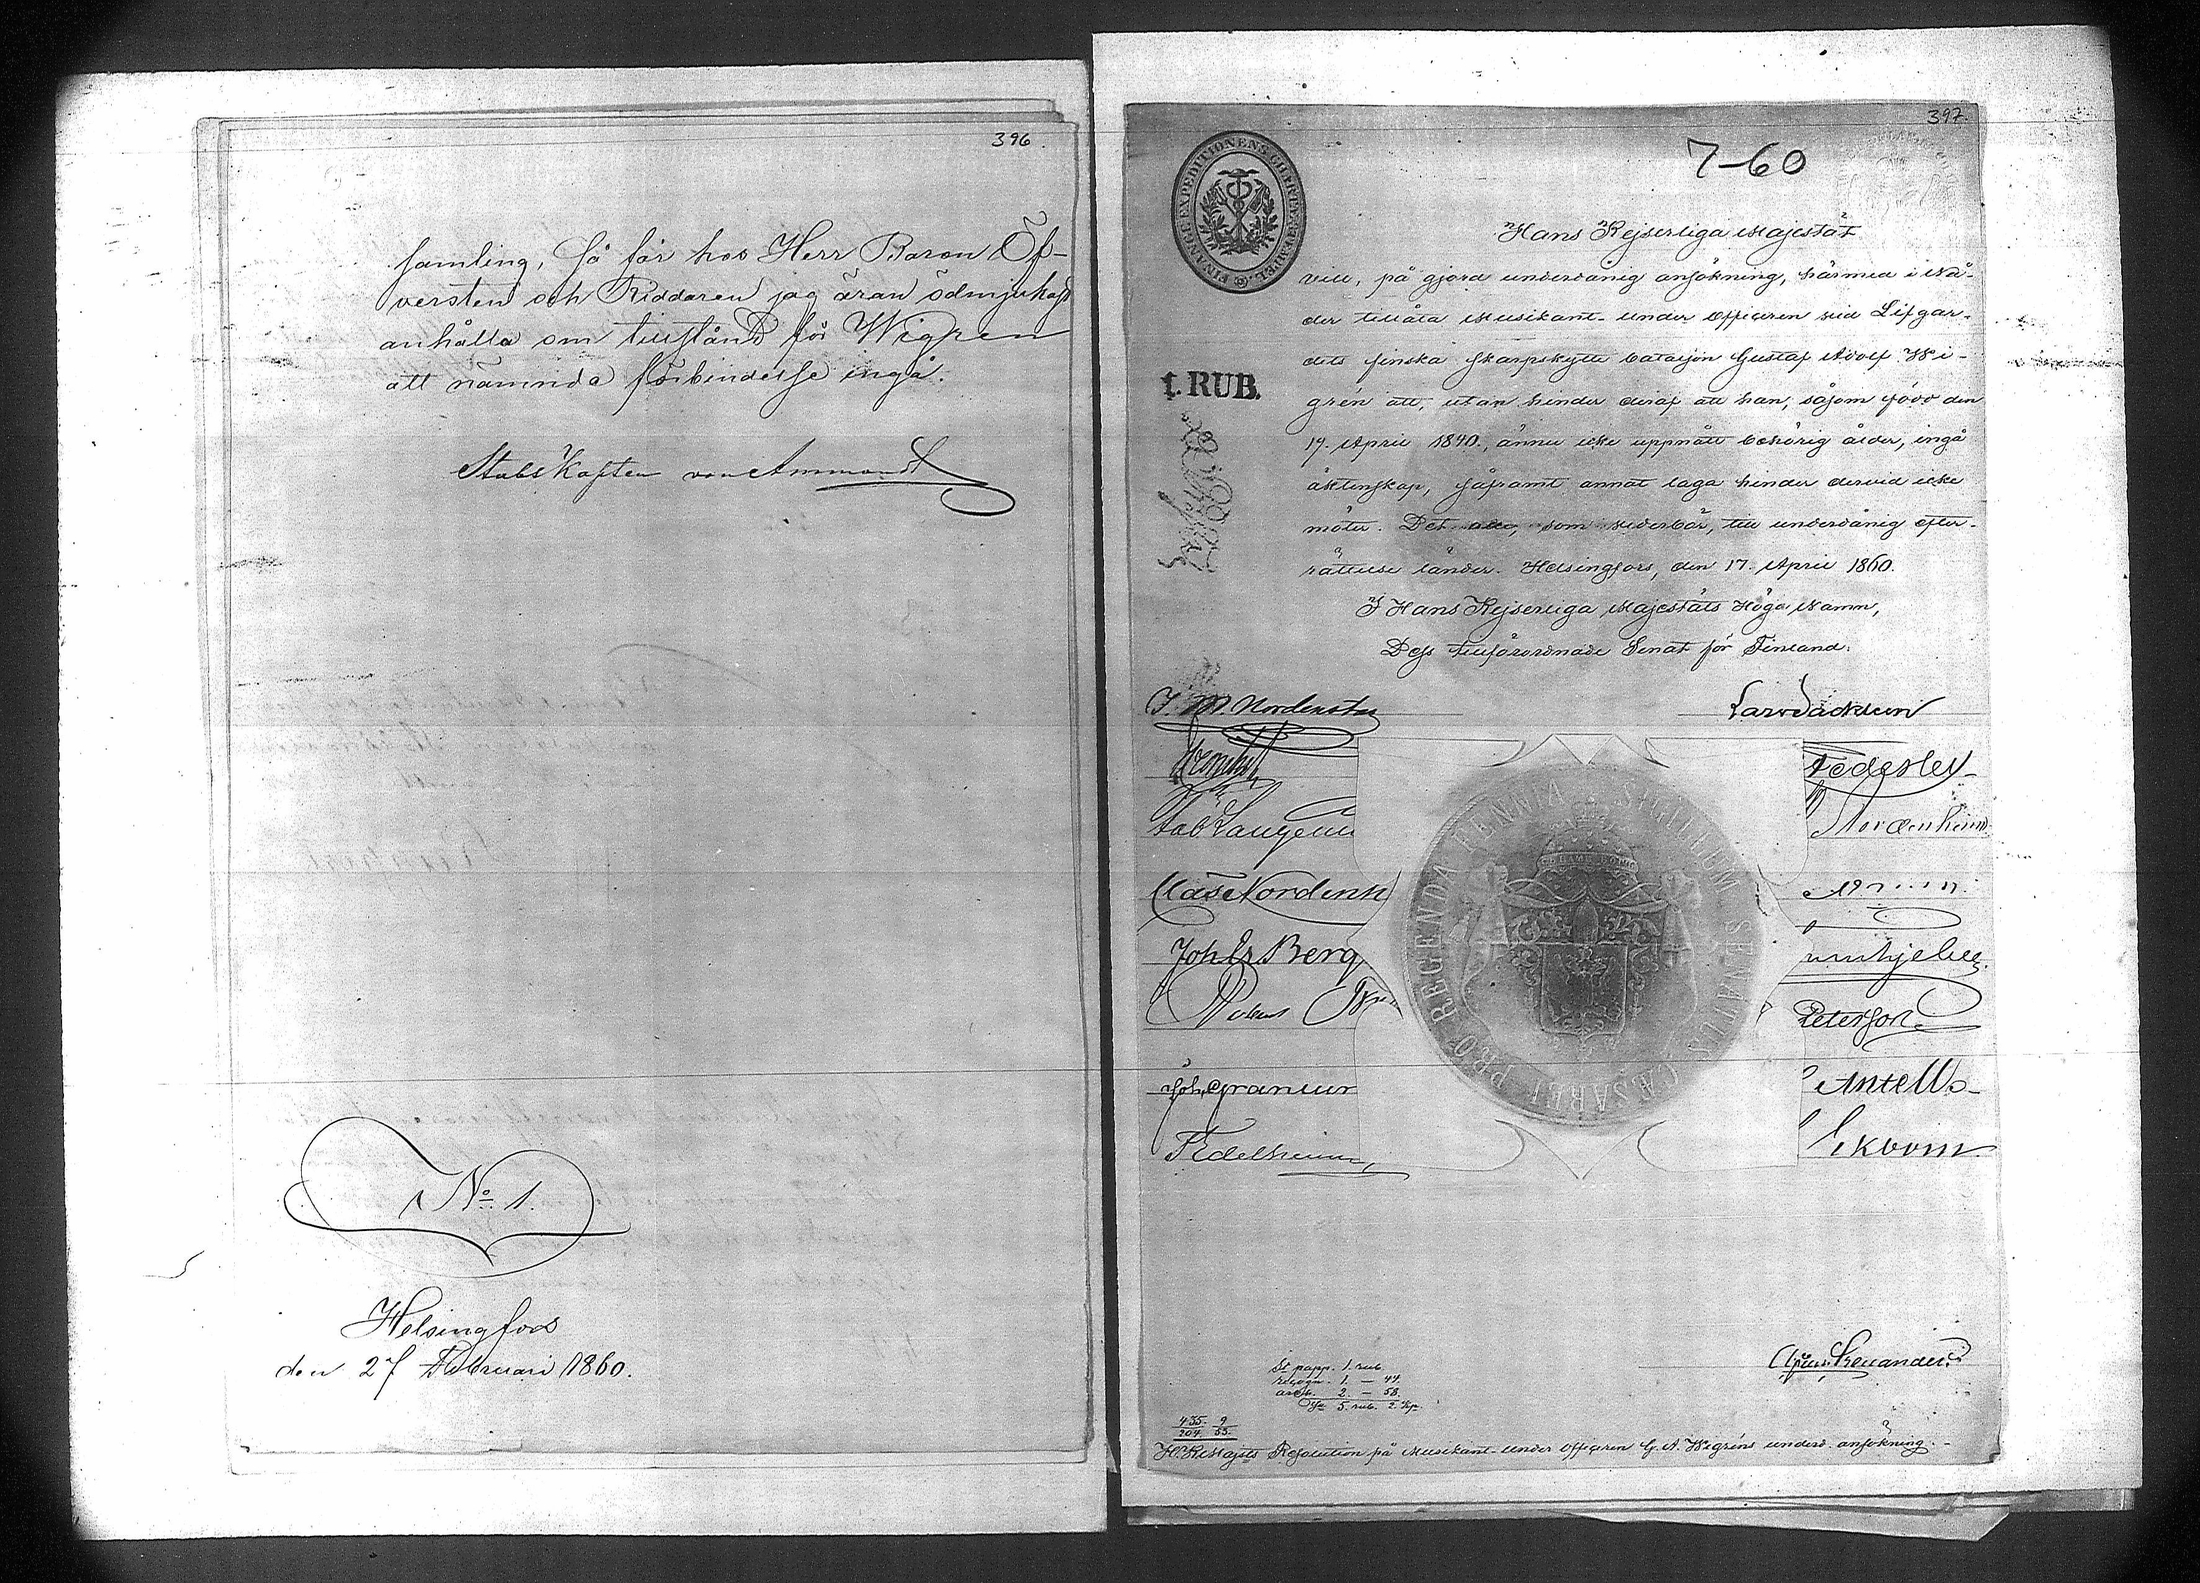 396.
samling, så får hos Herr Baron Öf-
versten och Riddaren jag äran ödmjukast
anhålla om tillstånd för Wigren
att nämnda förbindelse ingå.
Stabs Kapten von Ammondt
No 1.
Helsingfors
den 27 Februari 1860.
397.
7-60
FINANCE EXPEDITIONENS CHARTÆ STEMPEL
1. RUB.
Hans Kejserliga Majestät
vill, på gjord underdånig ansökning, härmed i Nå-
der tillåta Musikant-under officeren vid Lifgar-
dets finska skarpskytte bataljon Gustaf Adolf Wi-
gren att, utan hinder deraf att han, såsom född den
19. April 1840, ännu icke uppnått behörig ålder, ingå
äktenskap, såframt annat laga hinder dervid icke
möter. Det alle, som vederbör, till underdånig efter-
rättelse länder. Helsingfors, den 17. April 1860.
I Hans Kejserliga Majestäts Höga Namn,
Dess tillförordnade Senat för Finland:
J. M. Nordenstam
Lars Sackleen
Fab Langen
Nordenheim
Clas Nordenh
Joh Es Berg
Peterson
Joh. Granlun
Antell
F Edelheim
Ekbom
SIGILLUM SENATUS CÆSAREI PRO REGENDA FENNIA
St papp. 1 rub.
recogn. 1. — 44.
arch. 2. — 58.
Sa 5. rub. 2. kp.
435. 9
204. 55.
H. K. Majts Resolution på Musikant-under officeren G. A. Wigréns underd. ansökning.